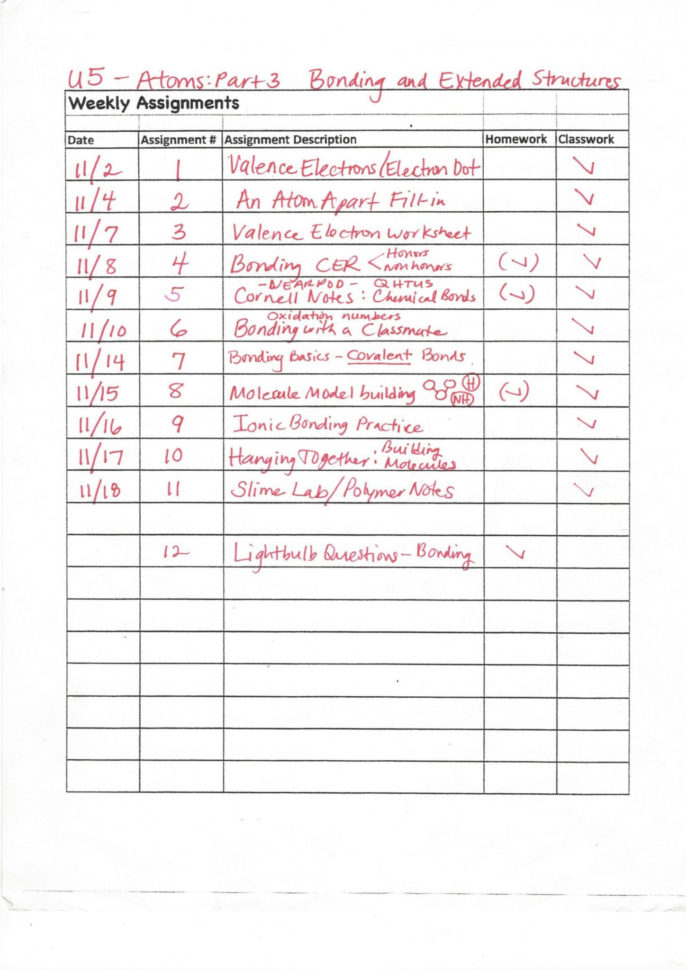 U5 - Atoms: Part 3 Bonding and Extended Structures
Weekly Assignments
Date Assignment # Assignment Description Homework Classwork
11/2 1 Valence Electrons/Electron Dot ✓
11/4 2 An Atom Apart Fill-in ✓
11/7 3 Valence Electron Worksheet ✓
Honors
11/8 4 Bonding CER < nonhonors (✓) ✓
- NEARPOD - QHTUS
11/9 5 Cornell Notes: Chemical Bonds (✓) ✓
Oxidation numbers
11/10 6 Bonding with a Classmate ✓
11/14 7 Bonding Basics - Covalent Bonds ✓
11/15 8 Molecule Model building H NH (✓) ✓
11/16 9 Ionic Bonding Practice ✓
Building
11/17 10 Hanging Together: Molecules ✓
11/18 11 Slime Lab/Polymer Notes ✓
12 Lightbulb Questions - Bonding ✓